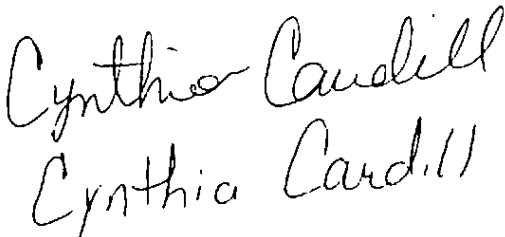 Cynthia Caudill
Cynthia Caudill